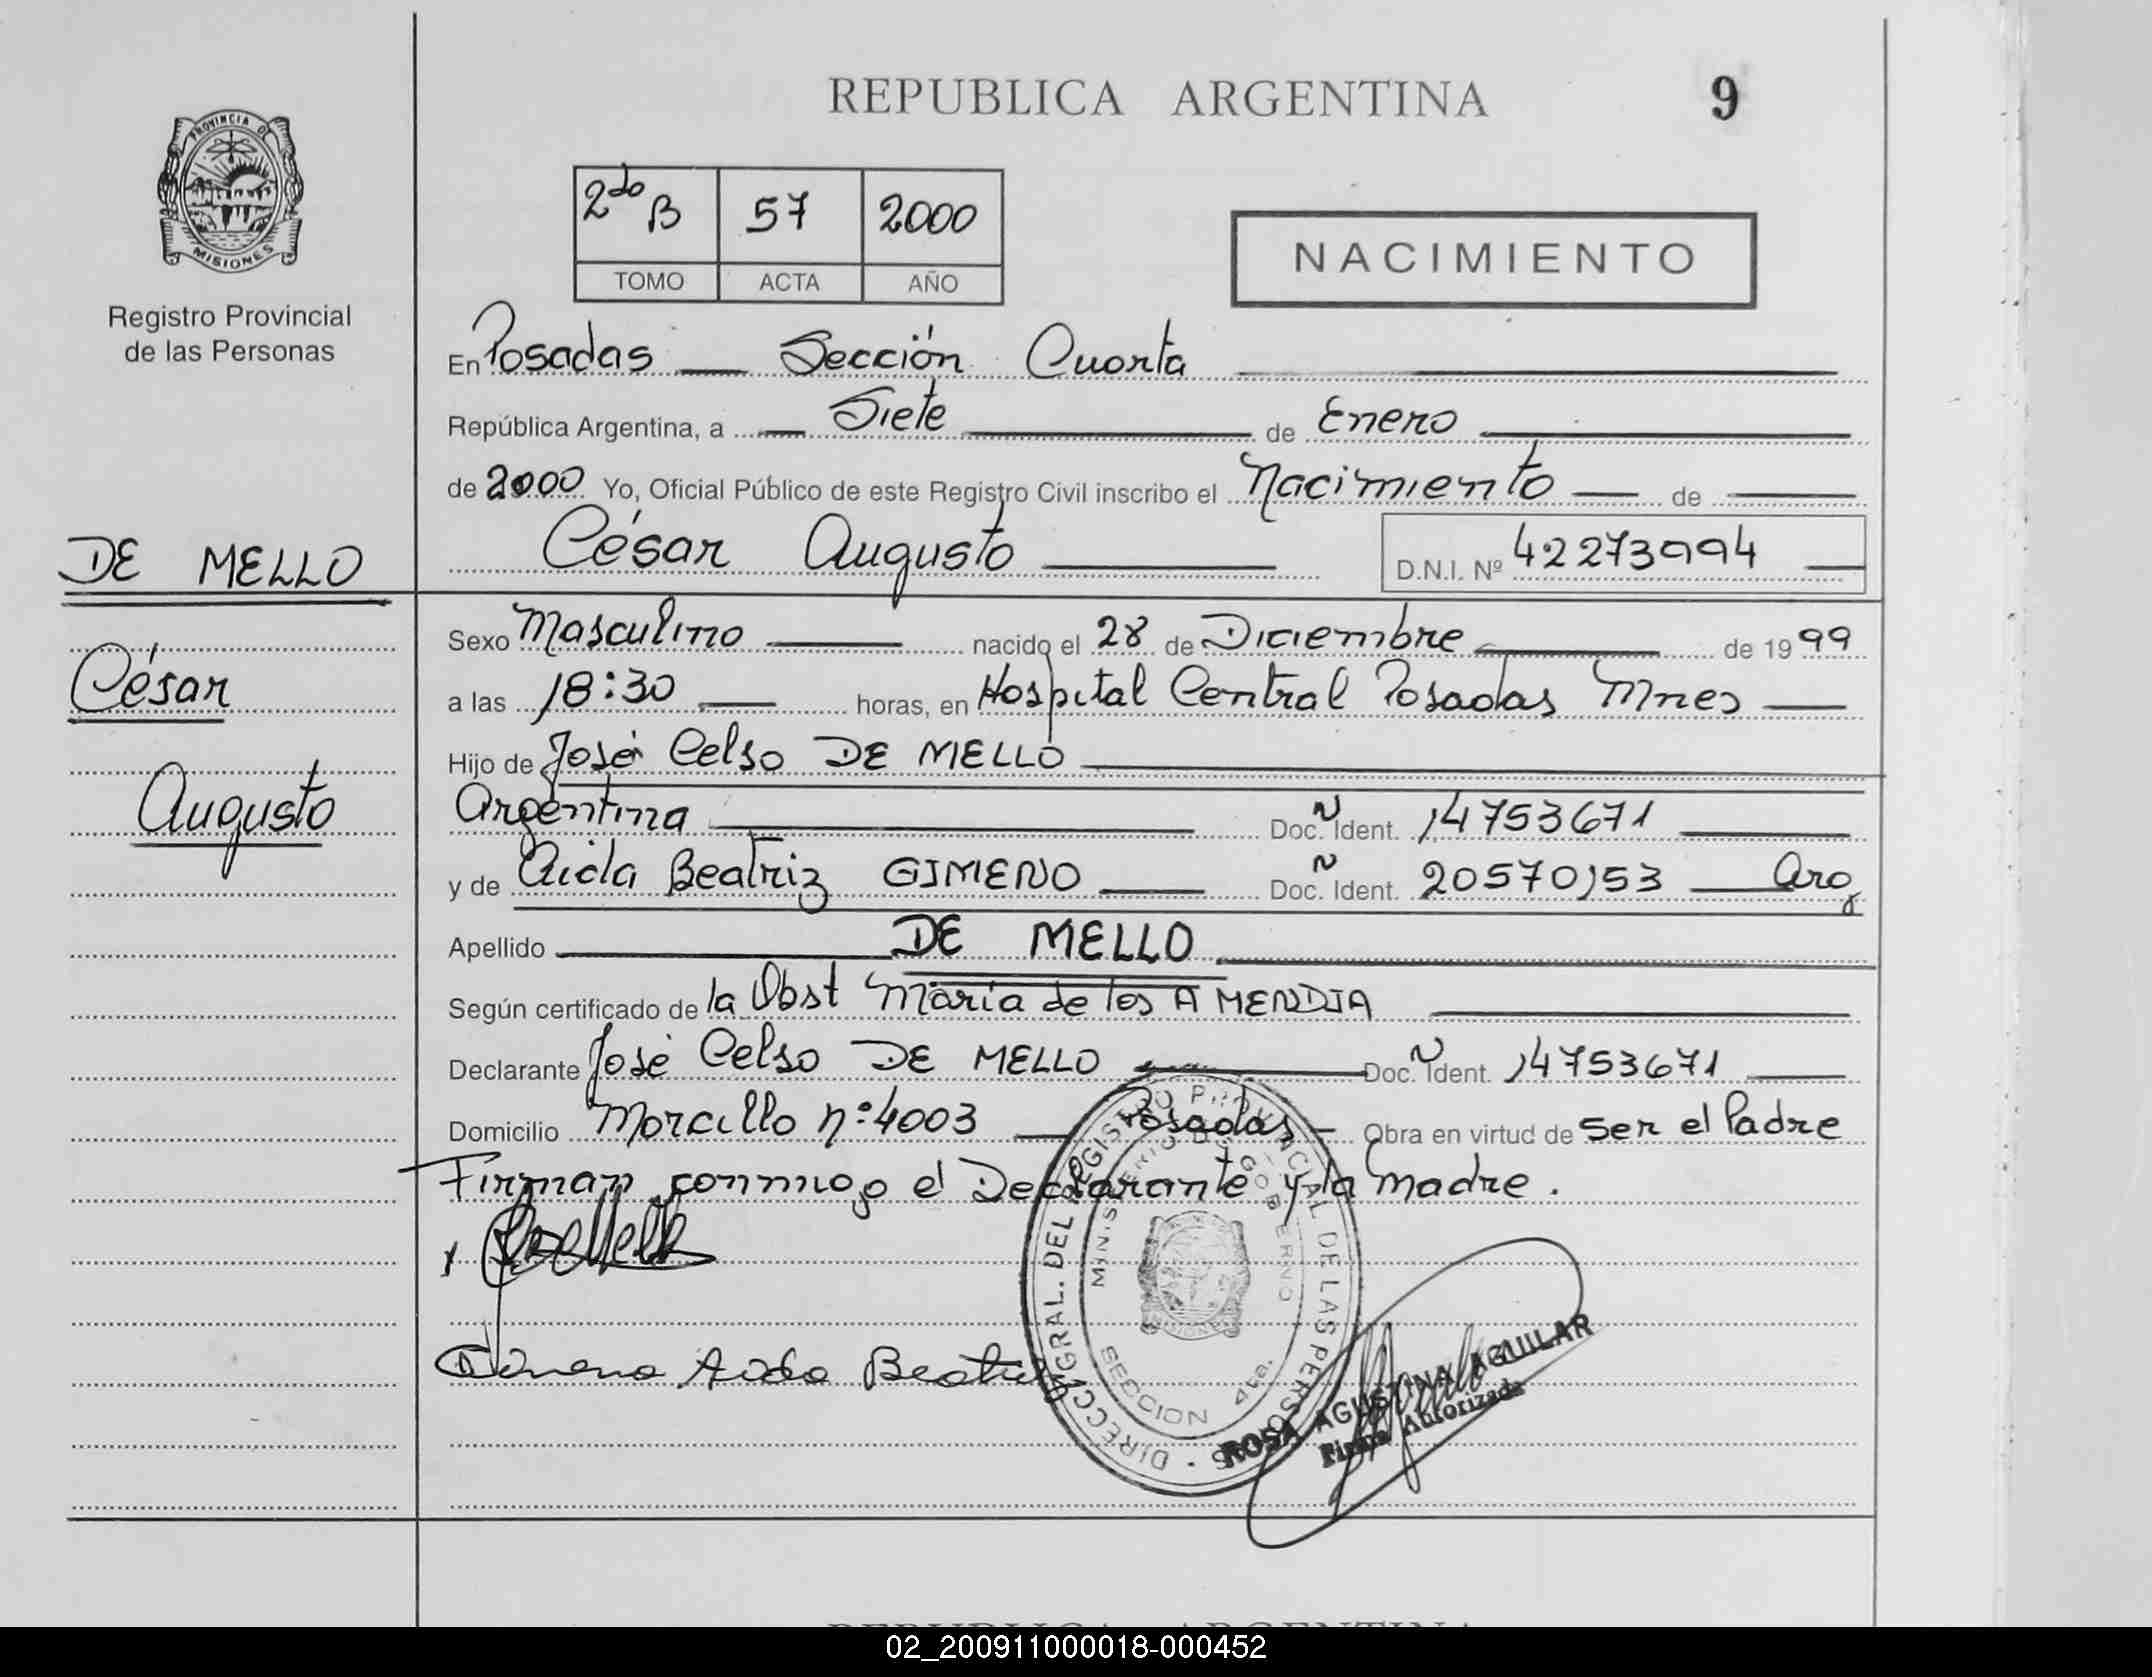 REPUBLICA ARGENTINA
9
PROVINCIA D
MISIONES
Registro Provincial
de las Personas
2do B 57 2000
TOMO ACTA AÑO
NACIMIENTO
En Posadas — Sección Cuarta
República Argentina, a — Siete — de Enero
de 2000 Yo, Oficial Público de este Registro Civil inscribo el Nacimiento — de —
César Augusto — D.N.I. Nº 42273994
DE MELLO
César
Augusto
Sexo Masculino — nacido el 28 de Diciembre — de 1999
a las 18:30 — horas, en Hospital Central Posadas Mnes —
Hijo de José Celso DE MELLO
Argentina — Doc. Ident. 14753671
y de Aida Beatriz GIMENO — Doc. Ident. 20570153 — Arg
Apellido — DE MELLO
Según certificado de la Obst Maria de los A MENDIA
Declarante José Celso DE MELLO — Doc. Ident. 14753671
Domicilio Morcillo nº 4003 — Posadas — Obra en virtud de ser el Padre
Firman conmigo el Declarante y la madre.
Gimeno Aida Beatriz
DIRECC. GRAL. DEL REGISTRO PROVINCIAL DE LAS PERSONAS
MINISTERIO DE GOBIERNO
SECCION 4ta.
MISIONES
ROSA AGUSTINA AGUILAR
Firma Autorizada
REPUBLICA ARGENTINA
02_200911000018-000452